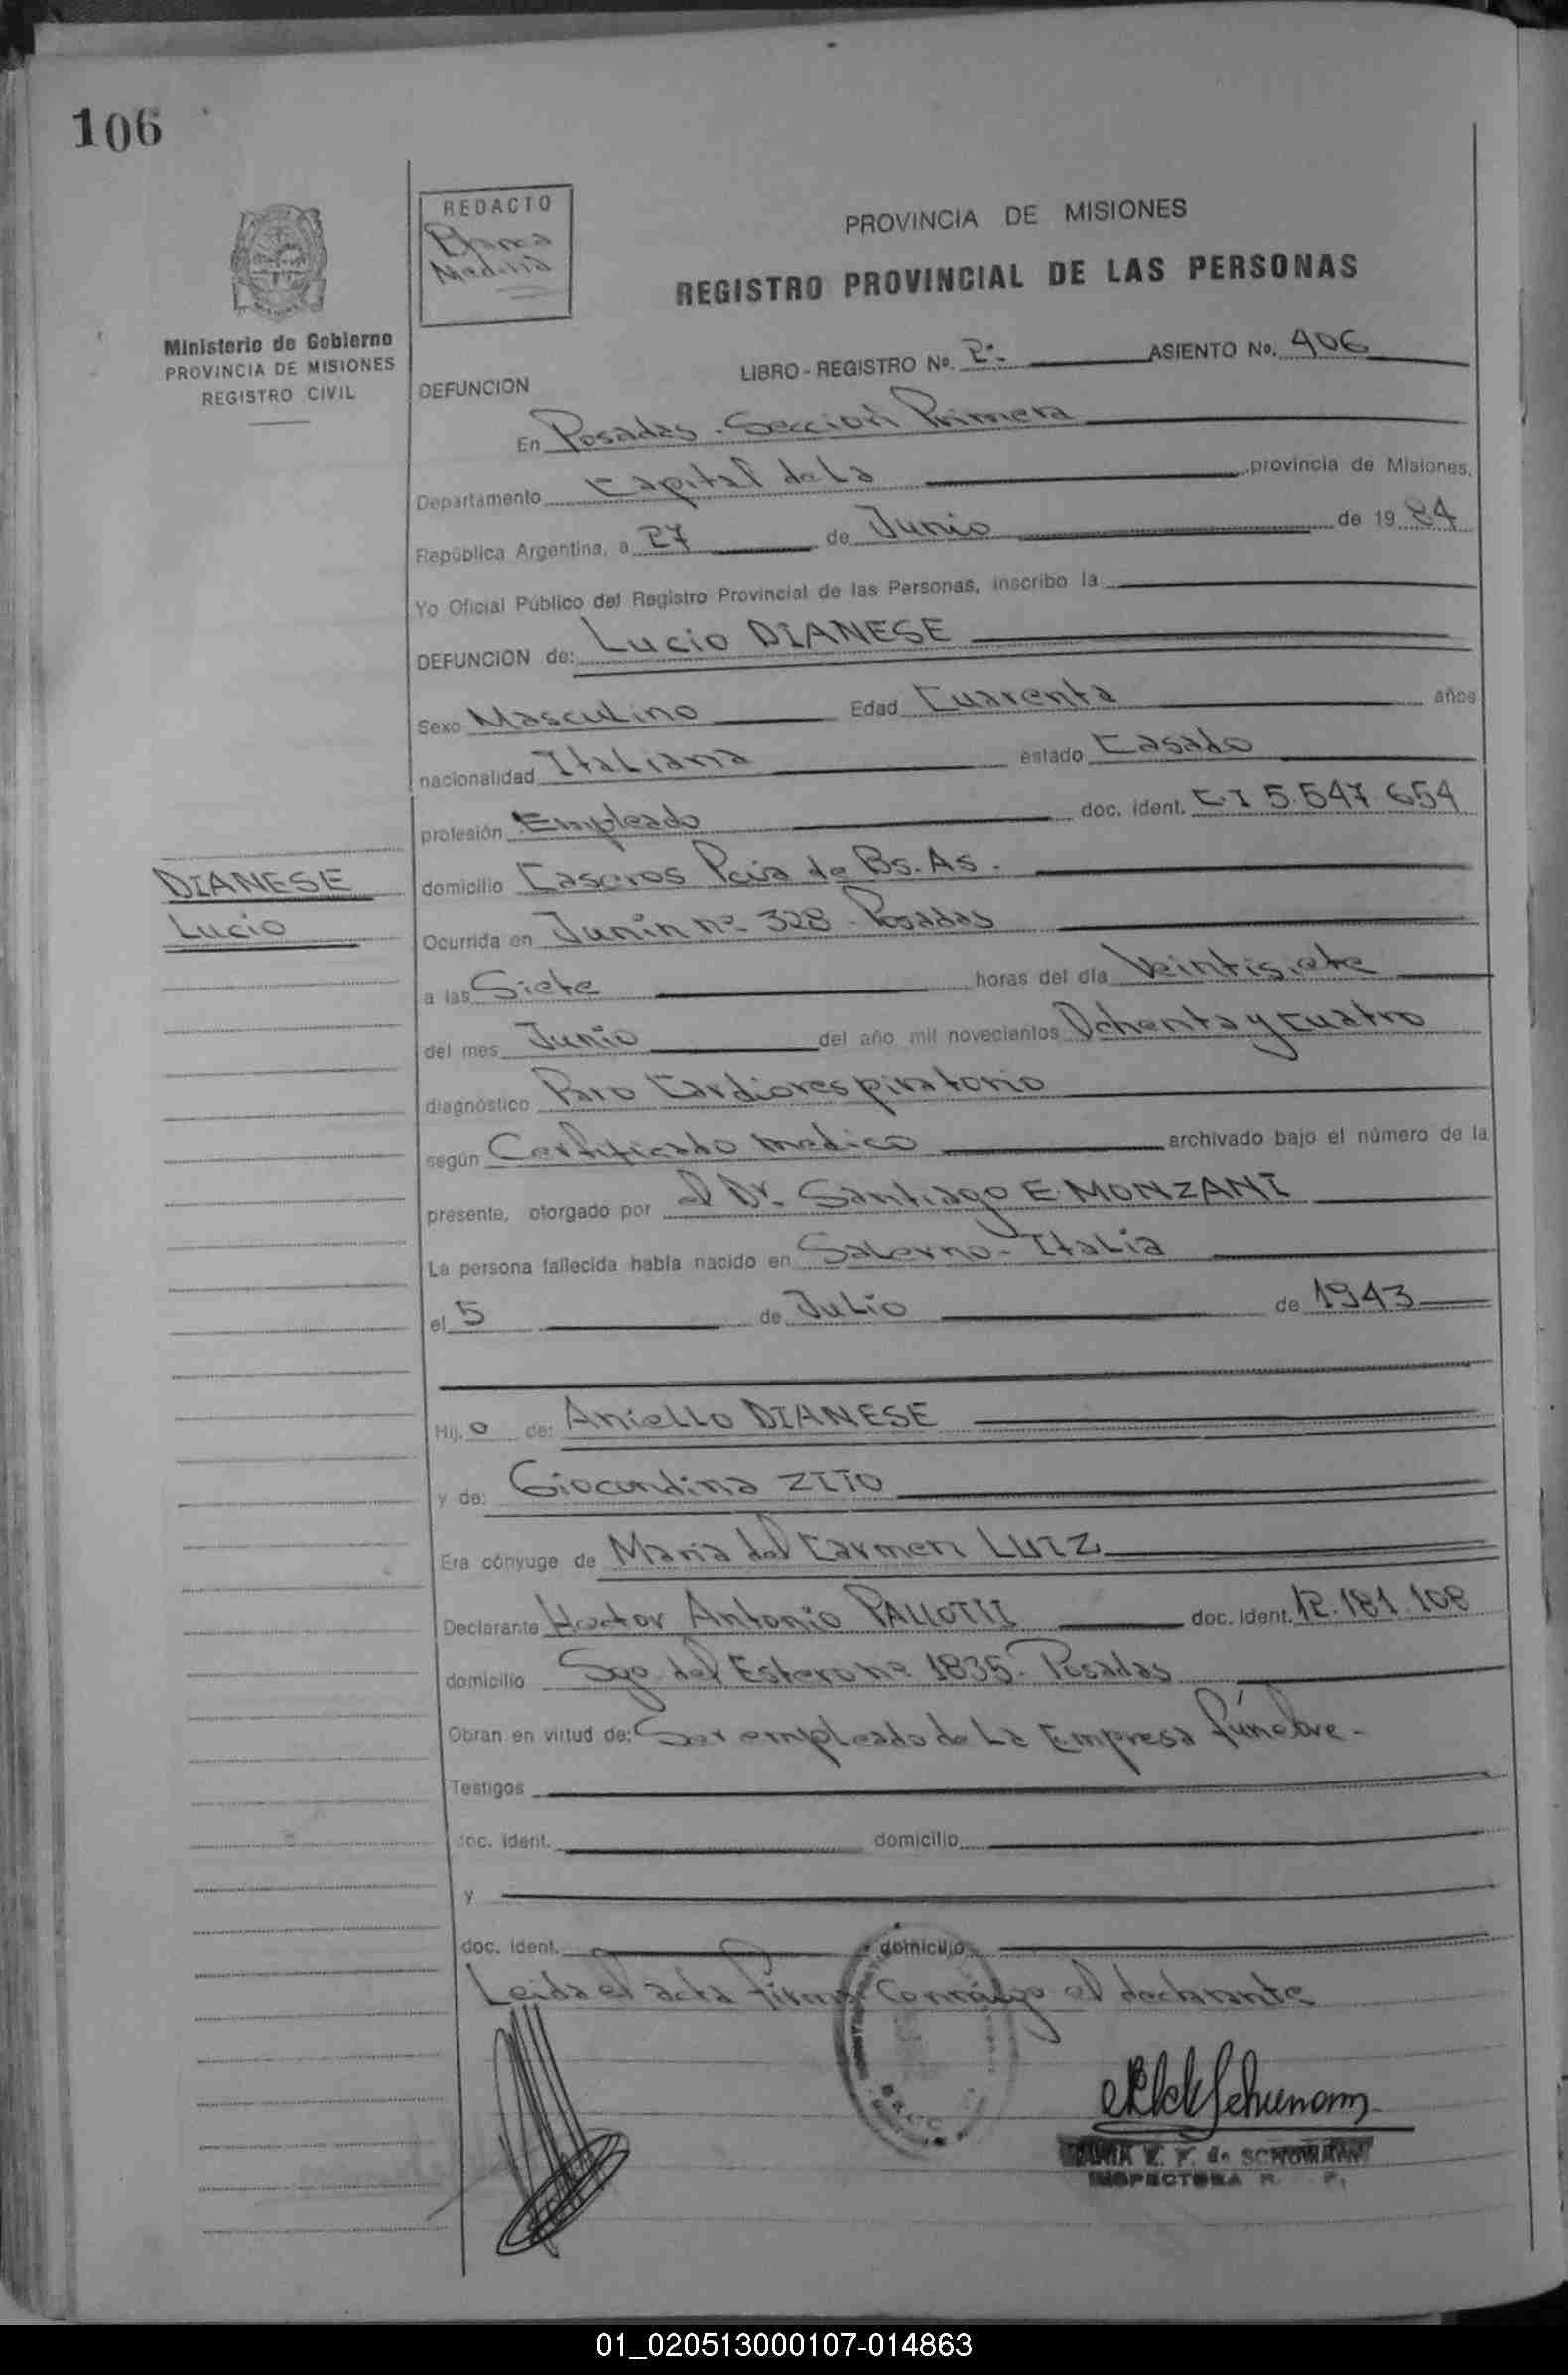 106
REDACTO
Blanca
Medina
PROVINCIA DE MISIONES
REGISTRO PROVINCIAL DE LAS PERSONAS
Ministerio de Gobierno
PROVINCIA DE MISIONES
REGISTRO CIVIL
LIBRO - REGISTRO No. 2º ASIENTO No. 406
DEFUNCION
En Posadas - Sección Primera
Departamento Capital de La provincia de Misiones,
República Argentina, a 27 de Junio de 1984
Yo Oficial Público del Registro Provincial de las Personas, inscribo la
DEFUNCION de: Lucio DIANESE
Sexo Masculino Edad Cuarenta años
nacionalidad Italiana estado Casado
profesión Empleado doc. ident. CI 5.547.654
DIANESE
Lucio
domicilio Caseros Pcia de Bs. As.
Ocurrida en Junin nº 328 - Posadas
a las Siete horas del día Veintisiete
del mes Junio del año mil novecientos Ochenta y cuatro
diagnóstico Paro Cardiorespiratorio
según Certificado medico archivado bajo el número de la
presente, otorgado por el Dr. Santiago E MONZANI
La persona fallecida había nacido en Salerno - Italia
el 5 de Julio de 1943
Hij o de: Aniello DIANESE
y de: Giocondina ZITO
Era cónyuge de Maria del Carmen LUIZ
Declarante Hector Antonio PALLOTTI doc. Ident. 12.181.108
domicilio Sgo. del Estero nº 1835 - Posadas
Obran en virtud de: Ser empleado de La Empresa fúnebre -
Testigos
doc. ident. domicilio
y
doc. ident. domicilio
Leida el acta firma conmigo el declarante
MARIA E. F. de SCHUMANN
INSPECTORA R. P.
01_020513000107-014863